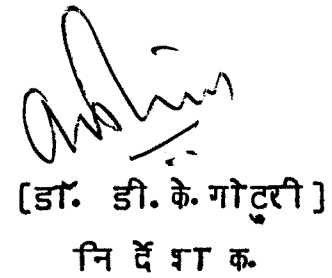 [डॉ. डी. के. गोटुरी]
नि र्दे शा क.